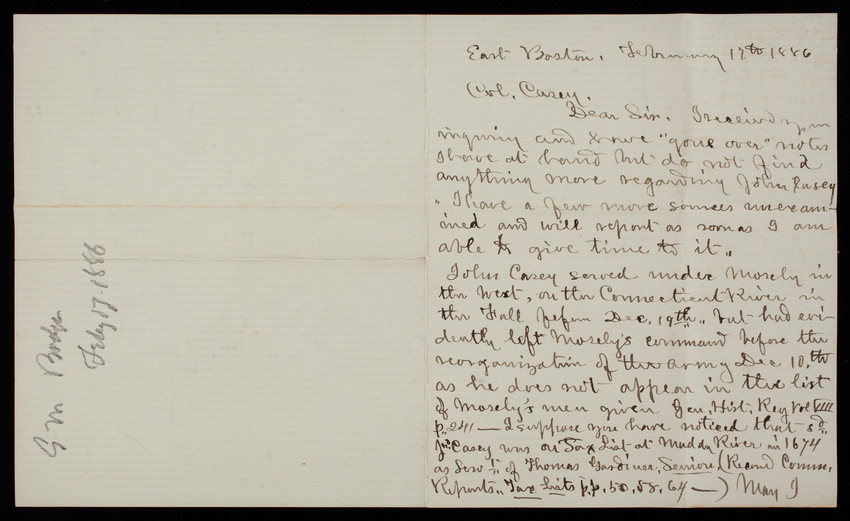 G. M. Bodge
Feby 17-1886
East Boston, February 17th 1886
Col. Casey,
Dear Sir. I received your
inquiry and have "gone over" notes
I have at hand but do not find
anything more regarding John Casey
"I have a few more sources unexam-
ined and will report as soon as I am
able to give time to it"
John Casey served under Mosely in
the West, on the Connecticut River in
the Fall before Dec. 19th, but had evi-
dently left Mosely's command before the
reorganization of the army Dec 10,th
as he does not appear in the list
of Mosely's men given Gen. Hist. Reg Vol VIII
p. 241 — I suppose you have noticed that sd
Jno Casey was on Tax List at Muddy River in 1674
as Servt of Thomas Gardiner, Senior (Record Comm.
Reports, Tax Lists p.p. 50, 58, 64 —) May I